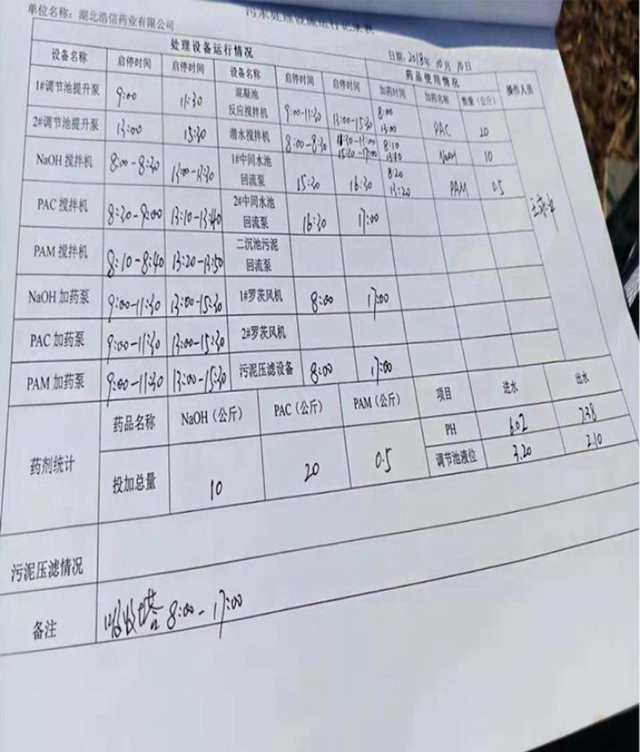 单位名称：湖北浩信药业有限公司
日期：2018年10月10日
处理设备运行情况 药品使用情况 操作人员
设备名称 启停时间 启停时间 设备名称 启停时间 启停时间 加药时间 加药名称 数量（公斤）
1#调节池提升泵 9:00 11:30 混凝池反应搅拌机 9:00-11:30 13:00-15:30 8:00 13:00 PAC 20
2#调节池提升泵 13:00 15:30 潜水搅拌机 8:00-8:30 15:30-17:00 8:10 NaOH 10
NaOH 搅拌机 8:00-8:30 13:00-13:30 1#中间水池回流泵 15:30 16:30 8:20 13:20 PAM 0.5
PAC 搅拌机 8:30-9:00 13:10-13:40 2#中间水池回流泵 16:30 17:00
PAM 搅拌机 8:10-8:40 13:20-13:50 二沉池污泥回流泵
NaOH 加药泵 9:00-11:30 13:00-15:30 1#罗茨风机 8:00 17:00
PAC 加药泵 9:00-11:30 13:00-15:30 2#罗茨风机
PAM 加药泵 9:00-11:30 13:00-15:30 污泥压滤设备 8:00 17:00
药剂统计 药品名称 NaOH（公斤） PAC（公斤） PAM（公斤） 项目 进水 出水
PH 6.02 7.38
投加总量 10 20 0.5 调节池液位 3.20 2.10
污泥压滤情况
备注 吸收塔 8:00-17:00